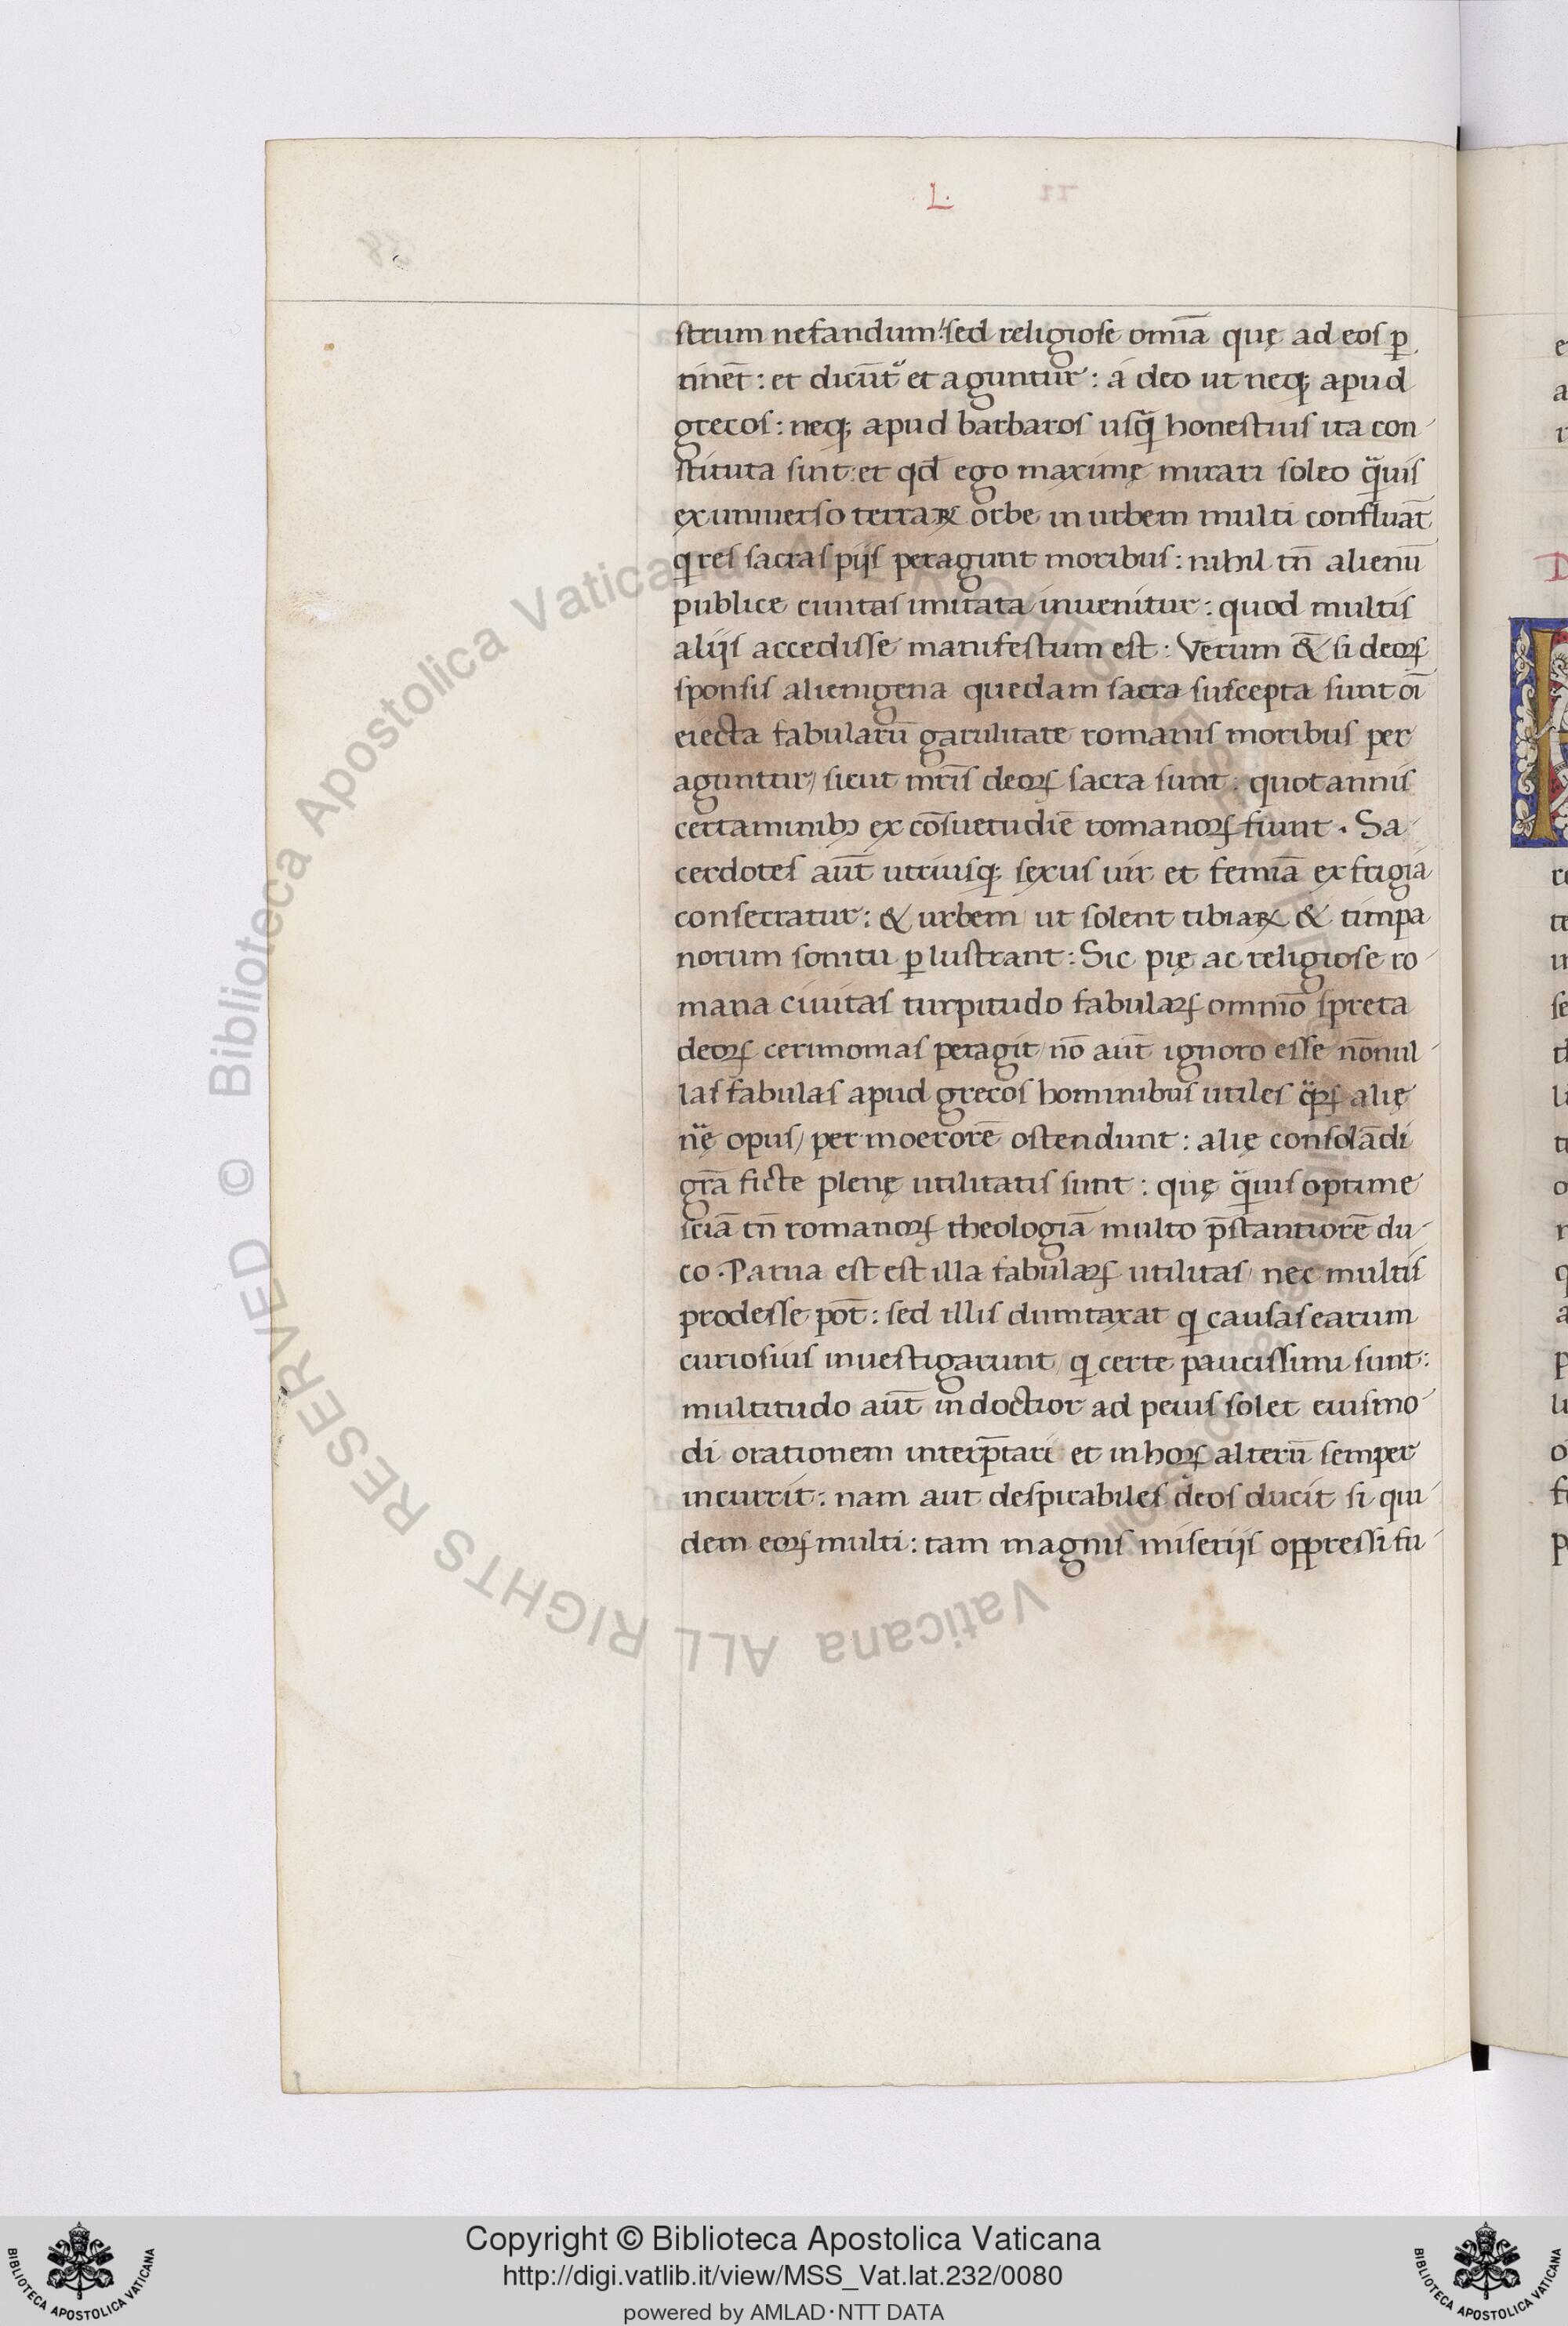 L.
strum nefandum: sed religiose om̅ia quę ad eos ꝑ
tinēt: et dicūtᷣ et aguntur: a deo ut neqꝫ apud
grecos: neqꝫ apud barbaros usꝗ̃ honestius ita con
stituta sint: et qd̄ ego maximę mirari soleo ꝗ̃uis
ex uniuerso terraꝝ orbe in urbem multi confluāt
ꝗ res sacras pijs peragunt moribus: nihil tn̄ alienū
publice ciuitas imitata inuenitur: quod multis
alijs accedisse manifestum est: Verum & si deoꝝ
sponsis alienigena quedam sacra suscepta sunt oī
eiecta fabularū garulitate romanis moribus per
aguntur/ sicut mr̄is deoꝝ sacra sunt: quotannis
certaminibꝫ ex cōsuetudiē romanoꝝ fiunt. Sa
cerdotes aūt utriusqꝫ sexus uir et femīa ex frigia
consecratur: & urbem/ ut solent tibiaꝝ & timpa
norum sonitu ꝑlustrant: Sic pię ac religiose ro
mana ciuitas turpitudo fabulaꝝ omnīo spreta
deoꝝ cerimonias peragit/ nō aūt ignoro esse nōnul
las fabulas apud grecos hominibus utiles ꝗ̃ꝝ alię
nr̄ę opus/ per moerorē ostendunt: alię consolādi
gr̄a ficte plenę utilitatis sunt: quę ꝗ̃uis optime
sciā tn̄ romanoꝝ theologiā multo p̄stantiorē du
co. Parua est est illa fabulaꝝ utilitas/ nec multis
prodesse pōt: sed illis dumtaxat ꝗ causas earum
curiosius inuestigarunt/ ꝗ certe paucissimi sunt:
multitudo aūt indoctior ad peius solet eiusmo
di orationem interp̄tari et in hoꝝ alterū semper
incurrit: nam aut despicabiles deos ducit si qui
dem eoꝝ multi: tam magnis miserijs oppressi fu
© Biblioteca Apostolica Vaticana ALL RIGHTS RESERVED
Copyright © Biblioteca Apostolica Vaticana
http://digi.vatlib.it/view/MSS_Vat.lat.232/0080
powered by AMLAD·NTT DATA
BIBLIOTECA APOSTOLICA VATICANA
BIBLIOTECA APOSTOLICA VATICANA